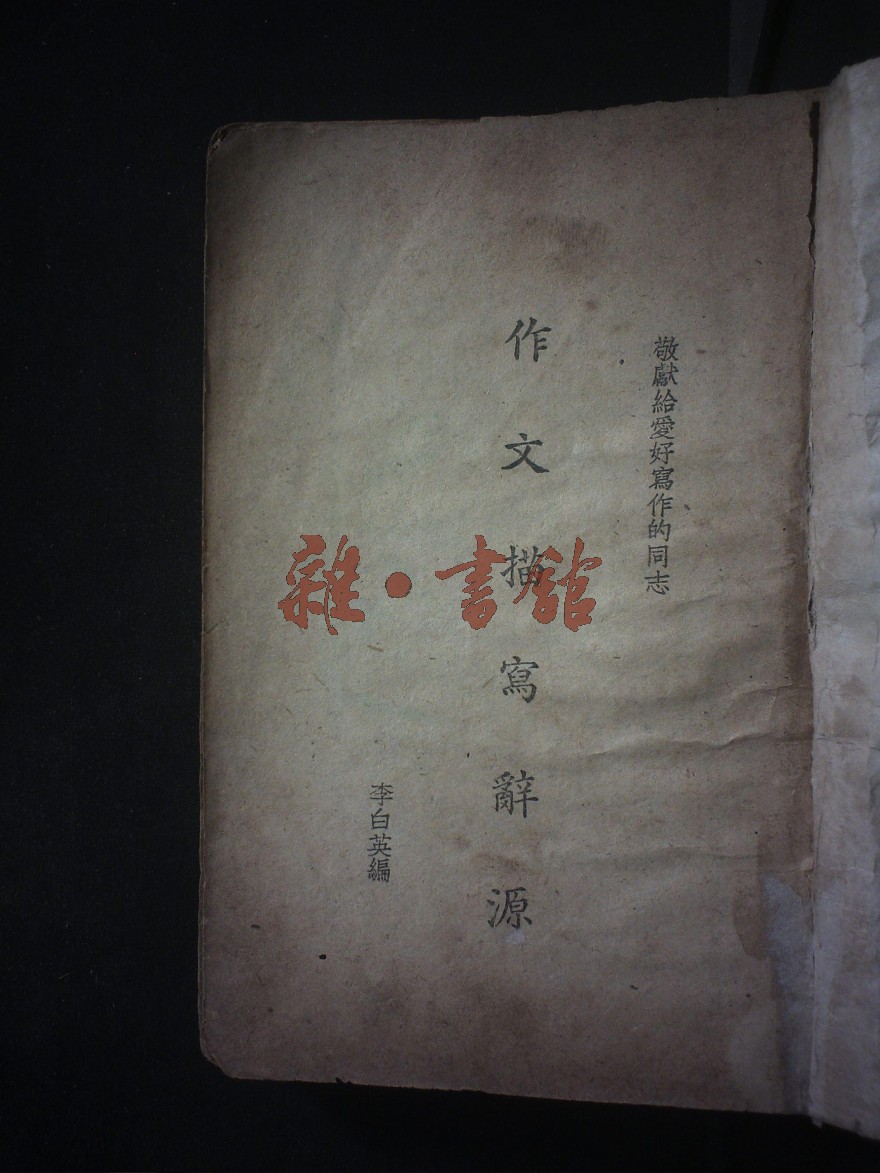 敬獻給愛好寫作的同志
作文描寫辭源
李白英編
雜·書館